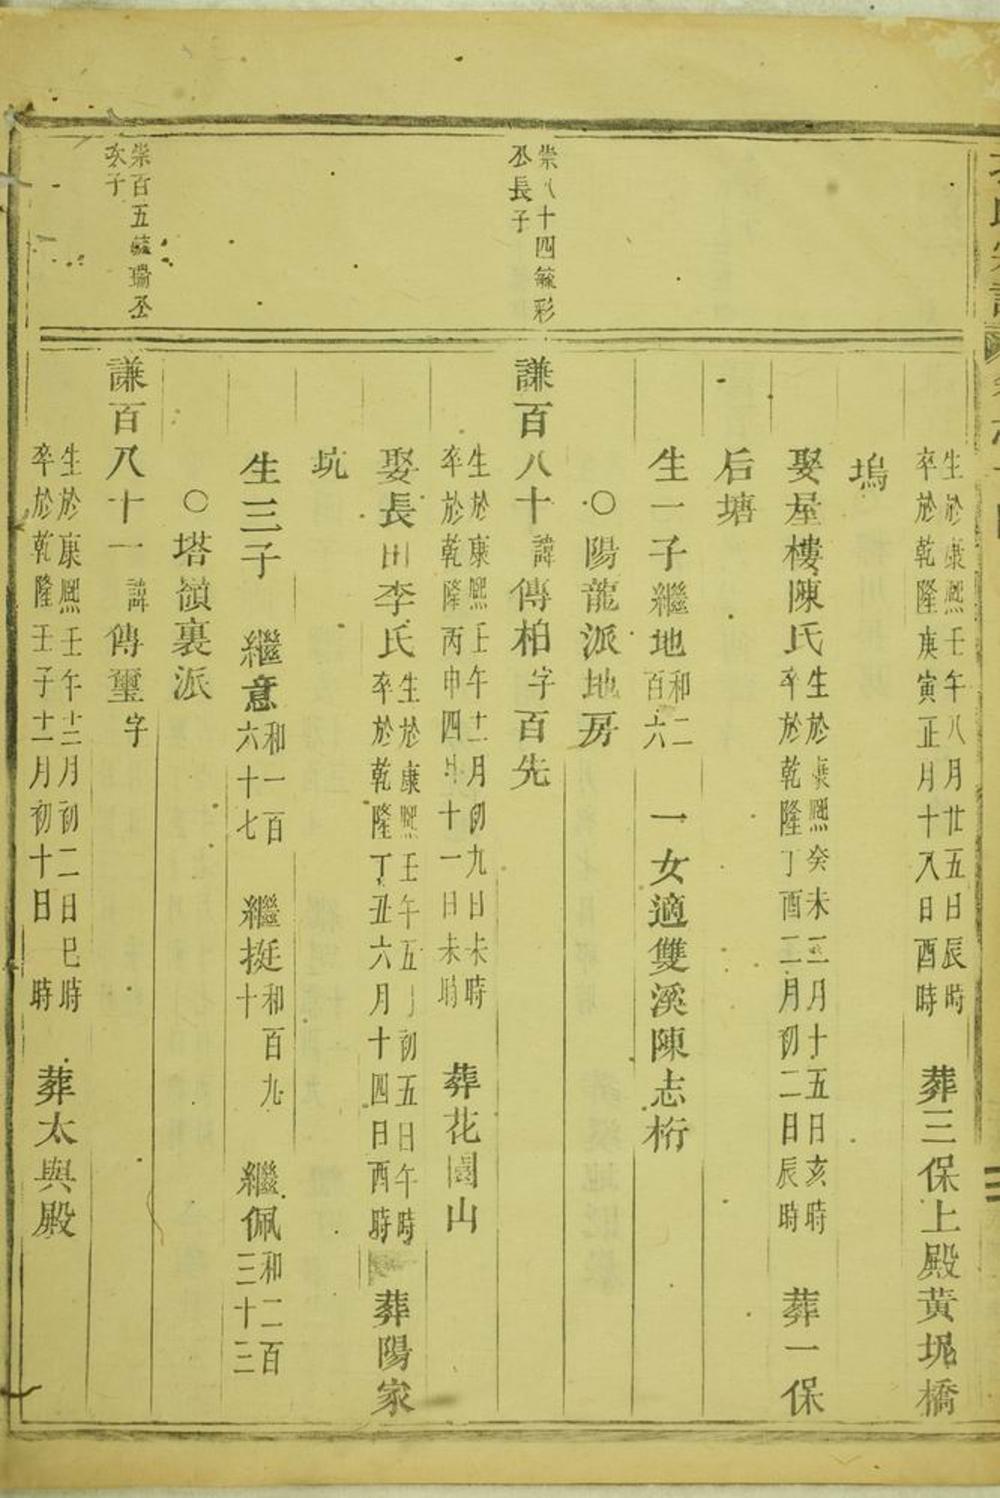 生於康熙壬午八月廿五日辰時
卒於乾隆庚寅正月十八日酉時
葬三保上殿黃堄橋
塢
娶屋樓陳氏
生於康熙癸未三月十五日亥時
卒於乾隆丁酉二月初二日辰時
葬一保
后塘
生一子繼地
和二
百六
一女適雙溪陳志桁
○陽龍派地房
崇八十四毓彩
公長子
謙百八十諱傳柏字百先
生於康熙壬午十二月初九日未時
卒於乾隆丙申四月十一日未時
葬花園山
娶長田李氏
生於康熙壬午五月初五日午時
卒於乾隆丁丑六月十四日酉時
葬陽家
坑
生三子
繼意
和一百
六十七
繼挺
和百九
十
繼佩
和二百
三十三
○塔嶺裏派
崇百五毓瑞公
次子
謙百八十一諱傳璽字
生於康熙壬午十二月初二日巳時
卒於乾隆壬子十二月初十日時
葬太與殿